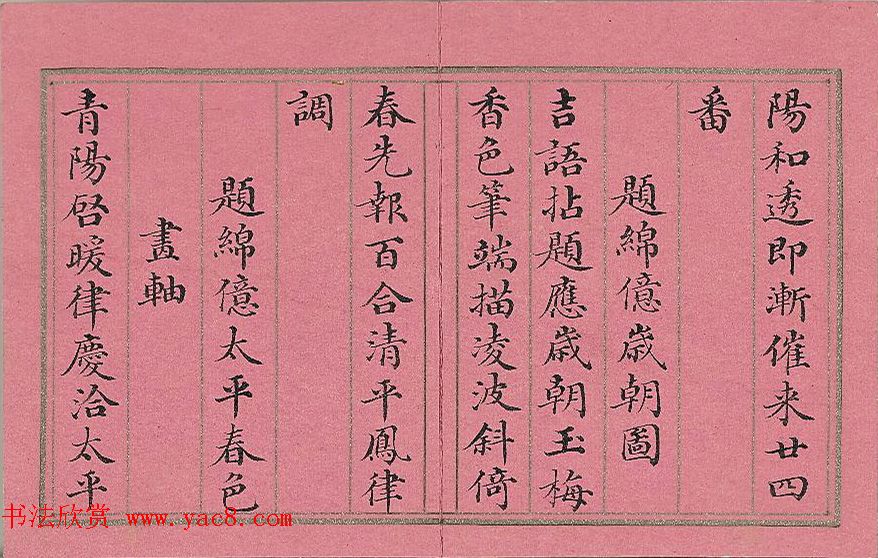 陽和透即漸催来廿四
番
題綿億歲朝圖
吉語拈題應歲朝玉梅
香色筆端描凌波斜倚
春先報百合清平鳳律
調
題綿億太平春色
畫軸
青陽啓暖律慶洽太平
书法欣赏 www.yac8.com